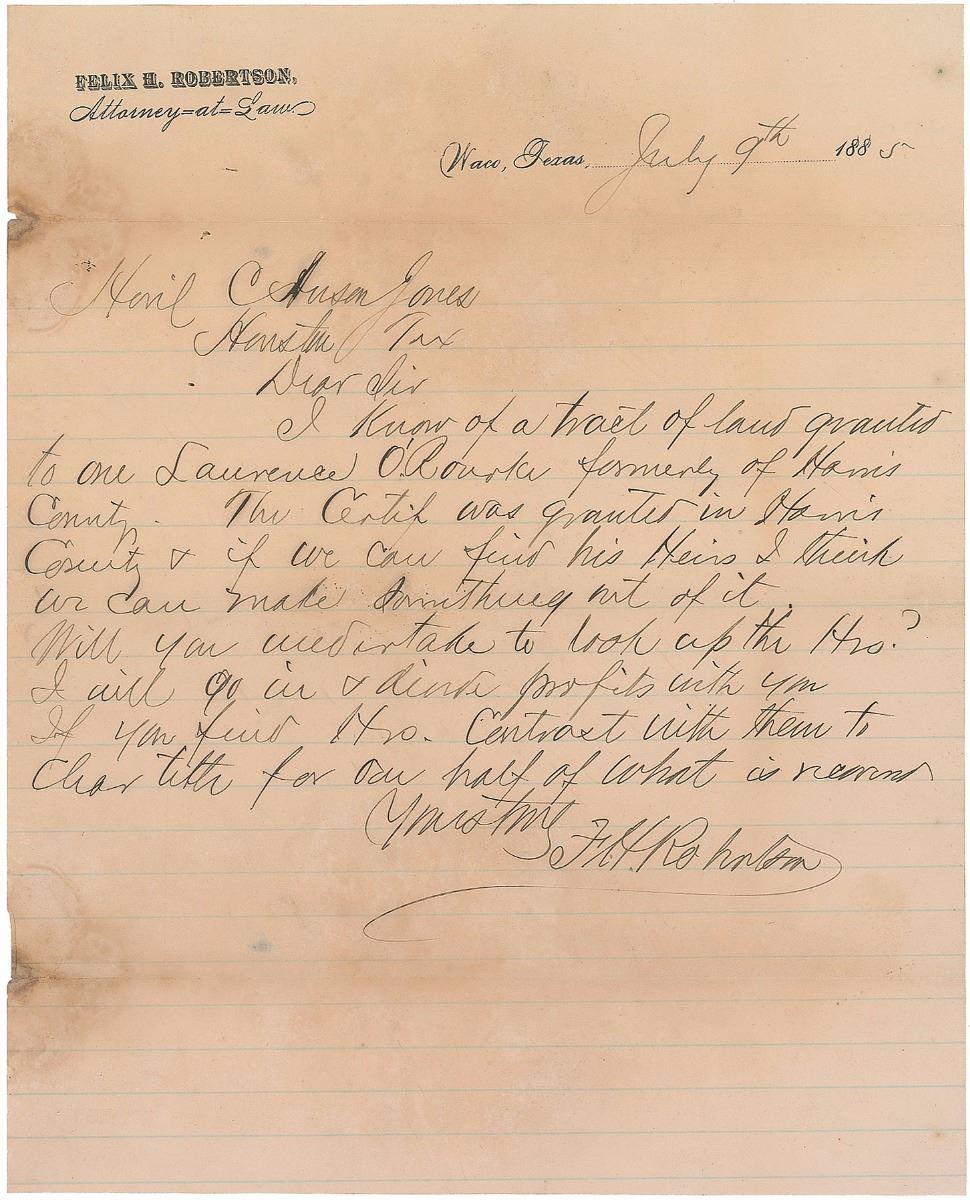 FELIX H. ROBERTSON,
Attorney=at=Law
Waco, Texas, July 9th 1885
C Anson Jones
Houston Tex
Dear Sir
I know of a tract of land granted
to one Laurence O.Rourke formerly of Harris
County. The Certif was granted in Harris
County & if we can find his Heirs I think
we can make something out of it.
Will you undertake to look up the Hrs.?
I will go in & divide profits with you
If you find Hrs. Contract with them to
Clear title for one half of what is recovered
Yours truly
F.H. Robertson